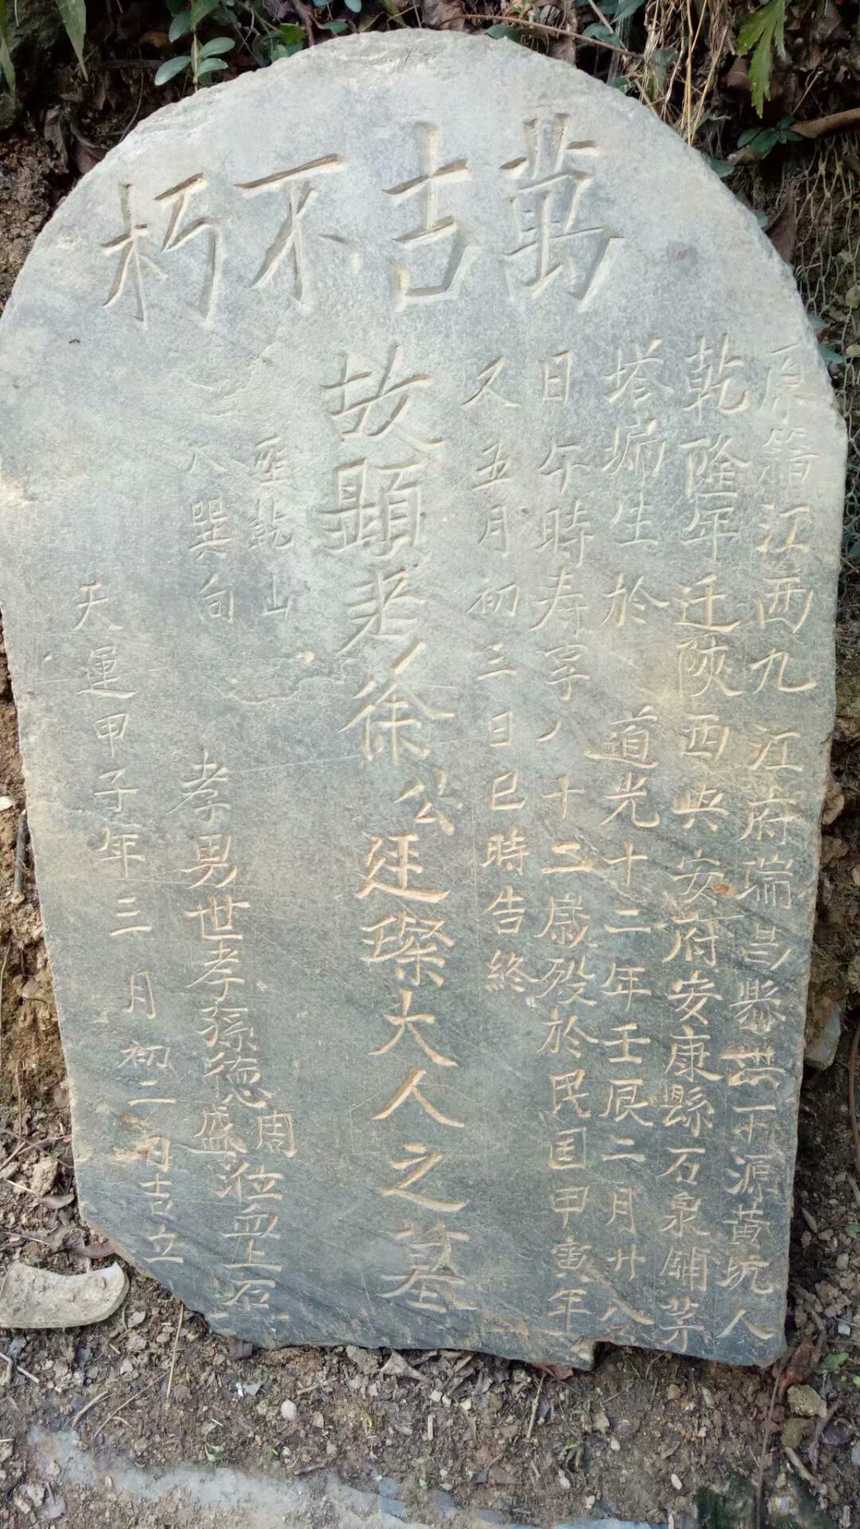 萬古不朽
原籍江西九江府瑞昌縣洪下源黄坑人
乾隆年迁陝西兴安府安康縣石泉鋪茅
塔塆生於道光十二年壬辰二月廿八
日午時寿享八十二歲殁於民国甲寅年
又五月初三日巳時告終
故顯考徐公廷璨大人之墓
乾山
巽向
孝男世孝孫德周盛
天運甲子年三月初二日吉立